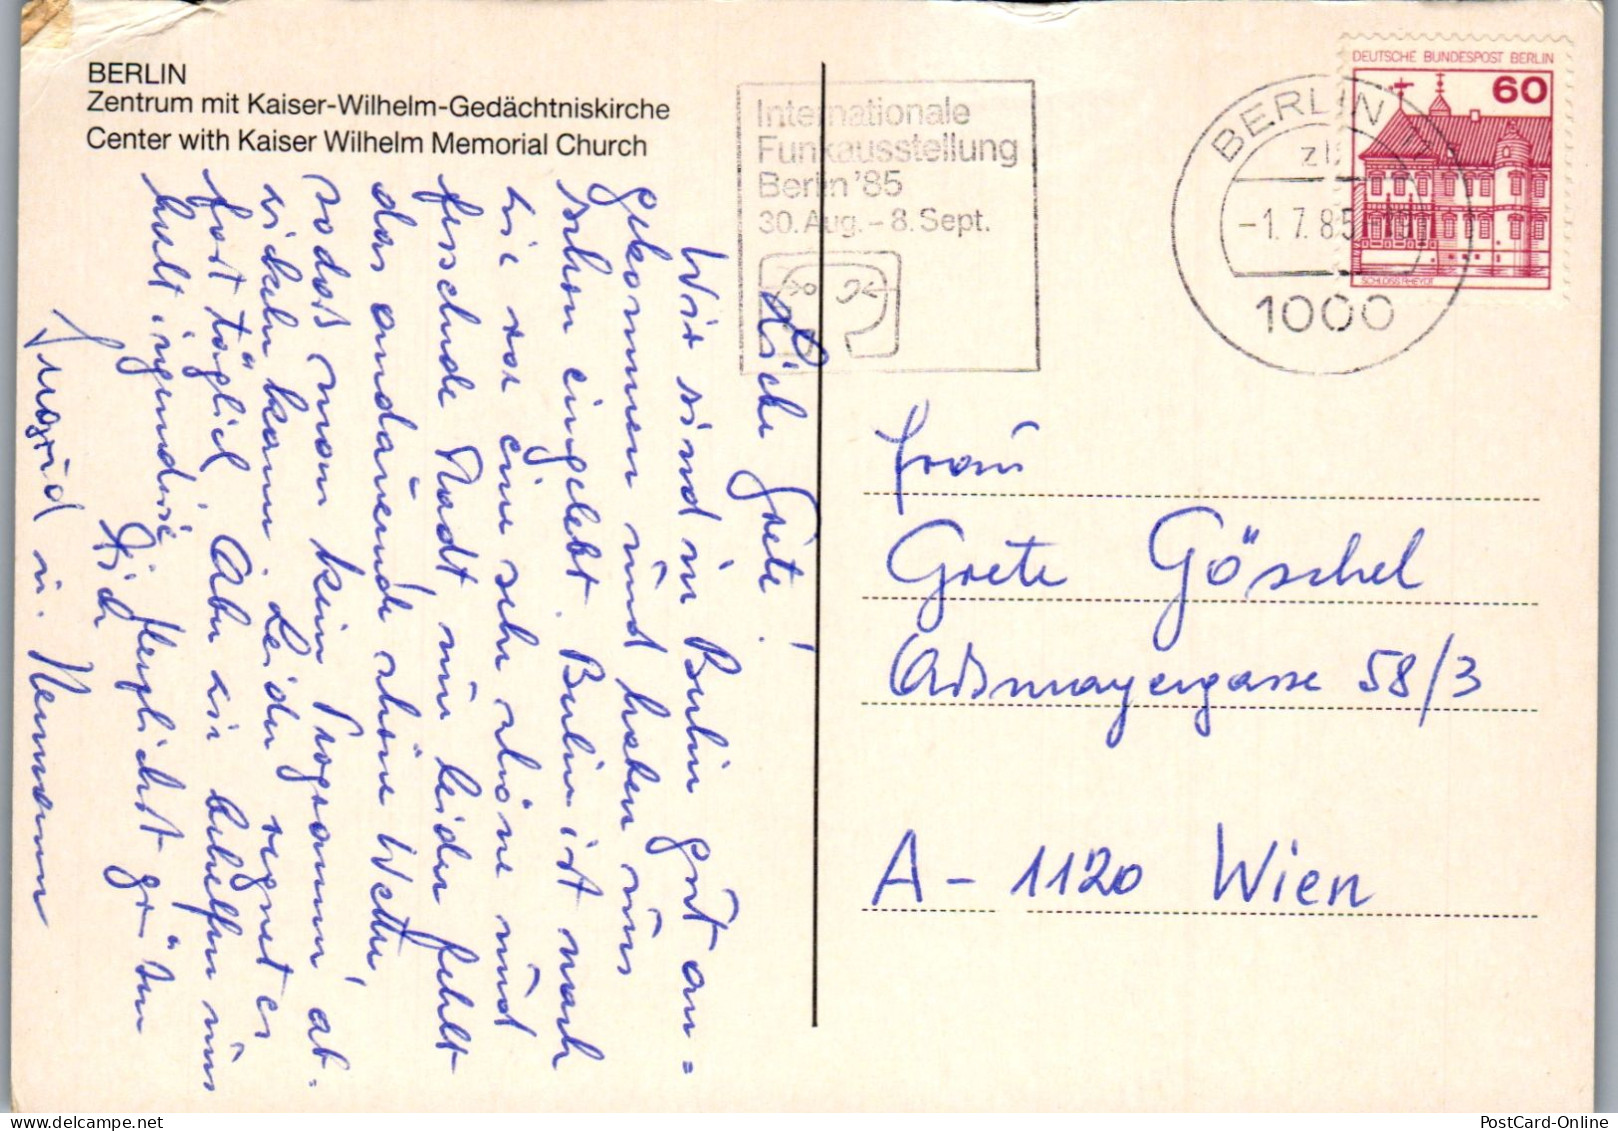 BERLIN
Zentrum mit Kaiser-Wilhelm-Gedächtniskirche
Center with Kaiser Wilhelm Memorial Church
Internationale
Funkausstellung
Berlin '85
30. Aug. – 8. Sept.
BERLIN
-1.7.85
1000
DEUTSCHE BUNDESPOST BERLIN
60
SCHLOSS RHEYDT
Liebe Grete!
Wir sind in Berlin gut an=
gekommen und haben uns
schon eingelebt. Berlin ist nach
wie vor eine sehr schöne und
fesselnde Stadt, nur leider fehlt
das andauernde schöne Wetter,
sodass man kein Programm ab-
wickeln kann. Leider regnet es
fast täglich. Aber wir behelfen uns
halt irgendwie.
Herzlichst grüßen
Dich
u. Hermann
Frau
Grete Göschel
Aßmayergasse 58/3
A - 1120 Wien
PostCard-Online